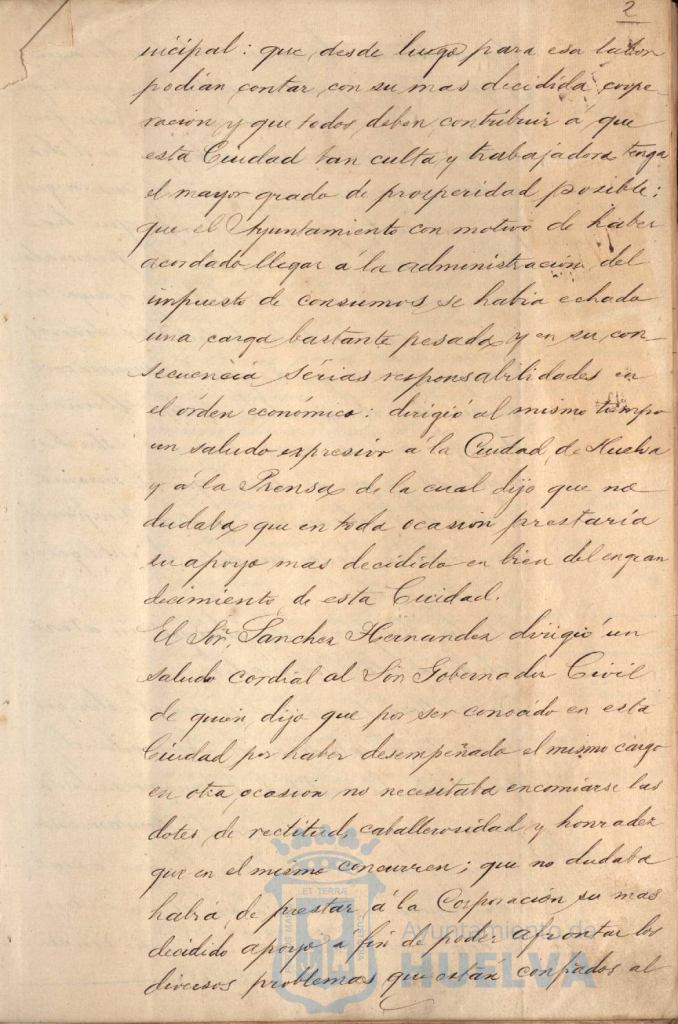 2
nicipal: que desde luego para esa labor
podian contar con su mas decidida coope-
racion y que todos deben contribuir á que
esta Ciudad tan culta y trabajadora tenga
el mayor grado de prosperidad posible;
que el Ayuntamiento con motivo de haber
acordado llegar á la administracion del
impuesto de consumos se habia echado
una carga bastante pesada y en su con-
secuencia sérias responsabilidades en
el órden económico: dirigió al mismo tiempo
un saludo expresivo á la Ciudad de Huelva
y á la Prensa de la cual dijo que no
dudaba que en toda ocasion prestaría
su apoyo mas decidido en bien del engran
decimiento de esta Ciudad.
El Sor. Sanchez Hernandez dirigió un
saludo cordial al Sor Gobernador Civil
de quien dijo que por ser conocido en esta
Ciudad por haber desempeñado el mismo cargo
en otra ocasion no necesitaba encomiarse las
dotes de rectitud, caballerosidad y honradez
que en el mismo concurren; que no dudaba
habrá de prestar á la Corporación su mas
decidido apoyo a fin de poder afrontar los
diversos problemas que estan confiados al
Ayuntamiento de
HUELVA